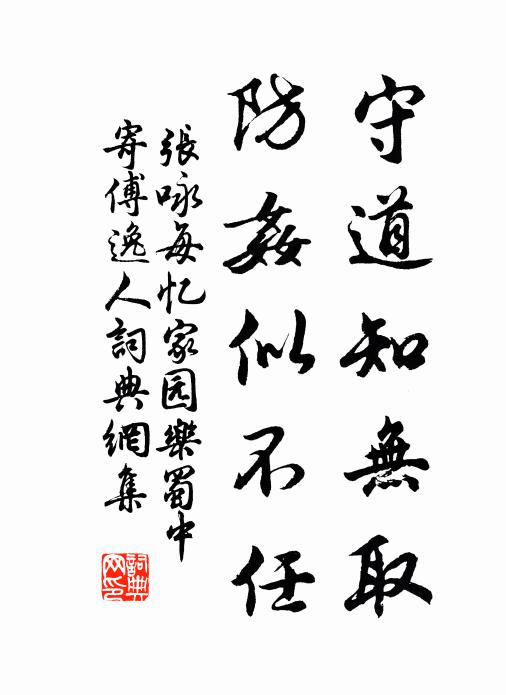 守道知無取
防姦似不任
張咏每忆家园樂蜀中
寄傅逸人詞典網集
詞典
网印